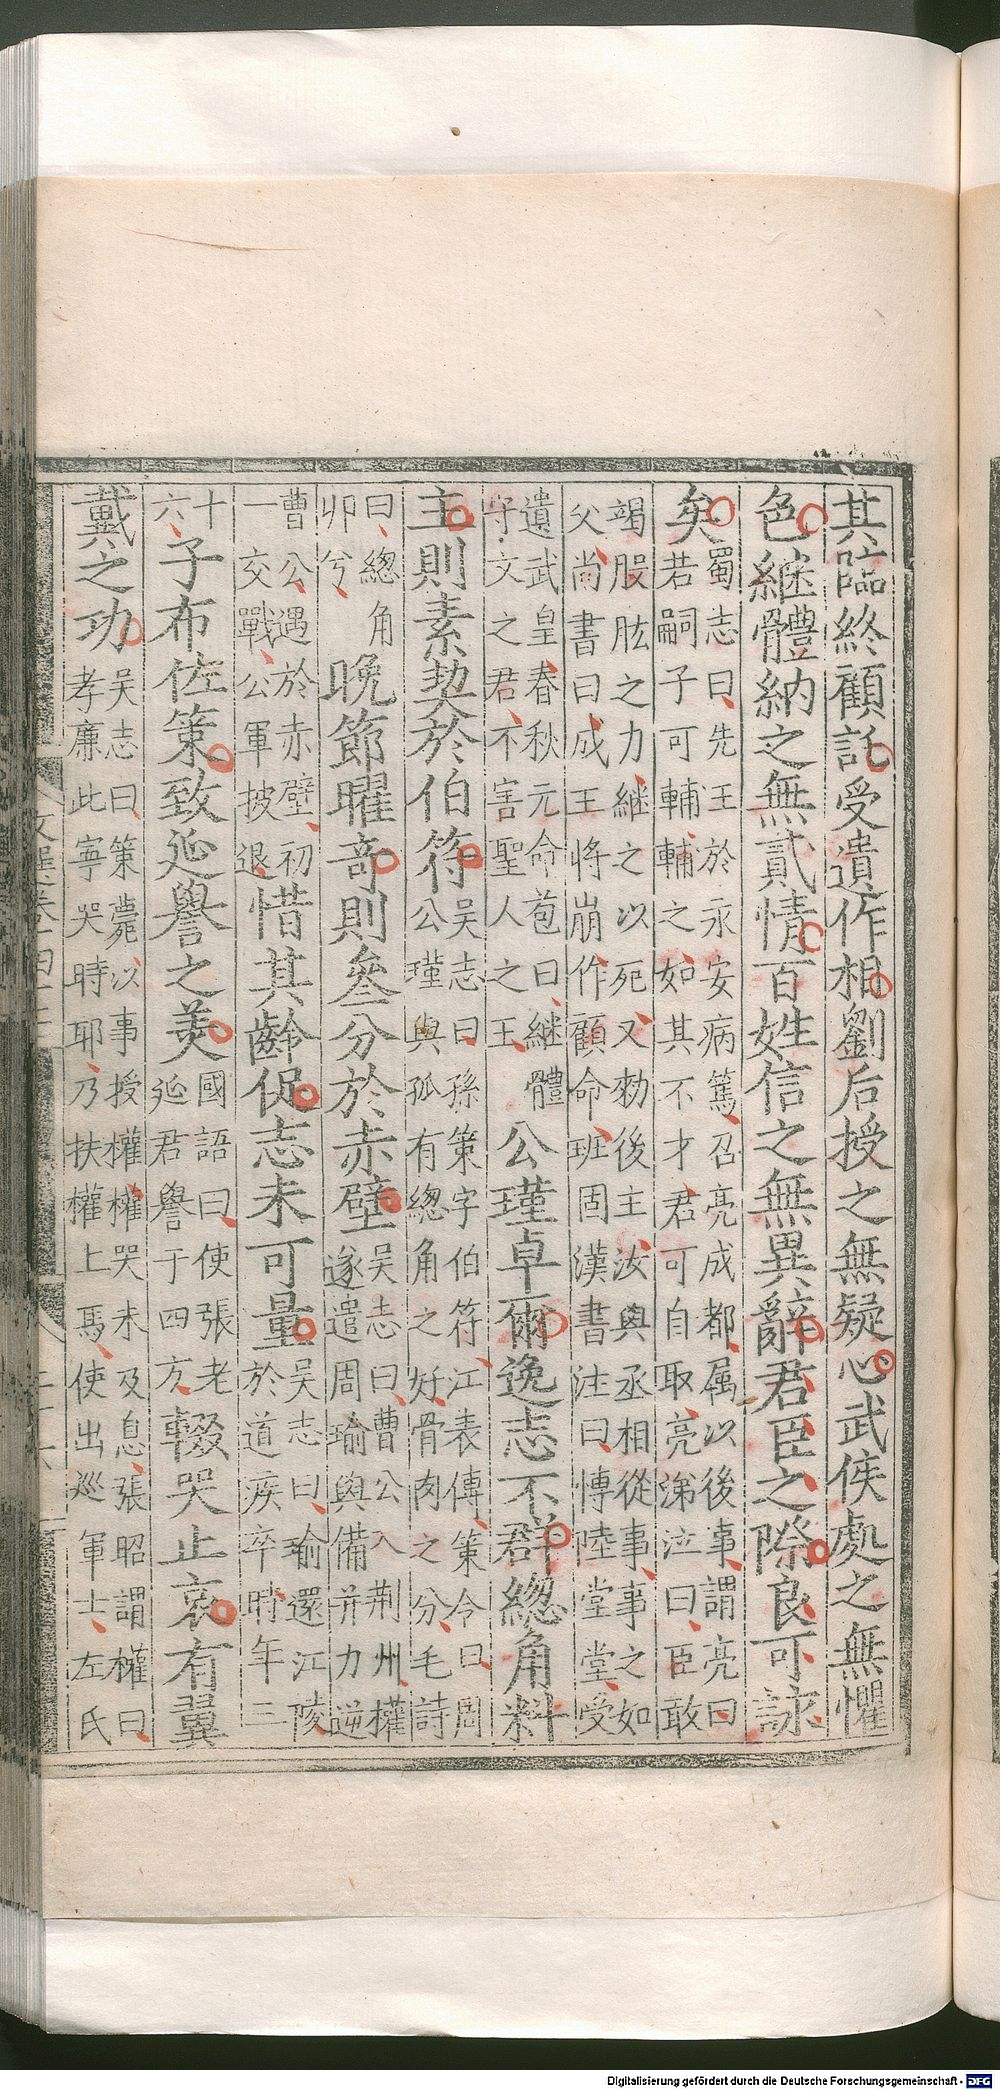 其臨終顧託受遺作相劉后授之無疑心武侯處之無懼
色繼體納之無貳情百姓信之無異辭君臣之際良可詠
矣蜀志曰先王於永安病篤召亮成都属以後事謂亮曰
若嗣子可輔輔之如其不才君可自取亮涕泣曰臣敢
竭股肱之力繼之以死又勑後主汝與丞相從事事之如
父尚書曰成王將崩作顧命班固漢書注曰博陸堂堂受
遺武皇春秋元命苞曰繼體
守文之君不害聖人之王公瑾卓爾逸志不群緫角料
主則素契於伯符吴志曰孫策字伯符江表傳策令曰周
公瑾與孤有緫角之好骨肉之分毛詩
曰緫角
丱兮晚節曜竒則叅分於赤壁吴志曰曹公入荆州權
遂遣周瑜與備并力逆
曹公遇於赤壁初
一交戰公軍披退惜其齡促志未可量吴志曰瑜還江陵
於道疾卒時年三
十
六子布佐策致延譽之美國語曰使張老
延君譽于四方輟哭止哀有翼
戴之功吴志曰策薨以事授權權哭未及息張昭謂權曰
孝廉此寧哭時耶乃扶權上馬使出巡軍士左氏
Digitalisierung gefördert durch die Deutsche Forschungsgemeinschaft - DFG